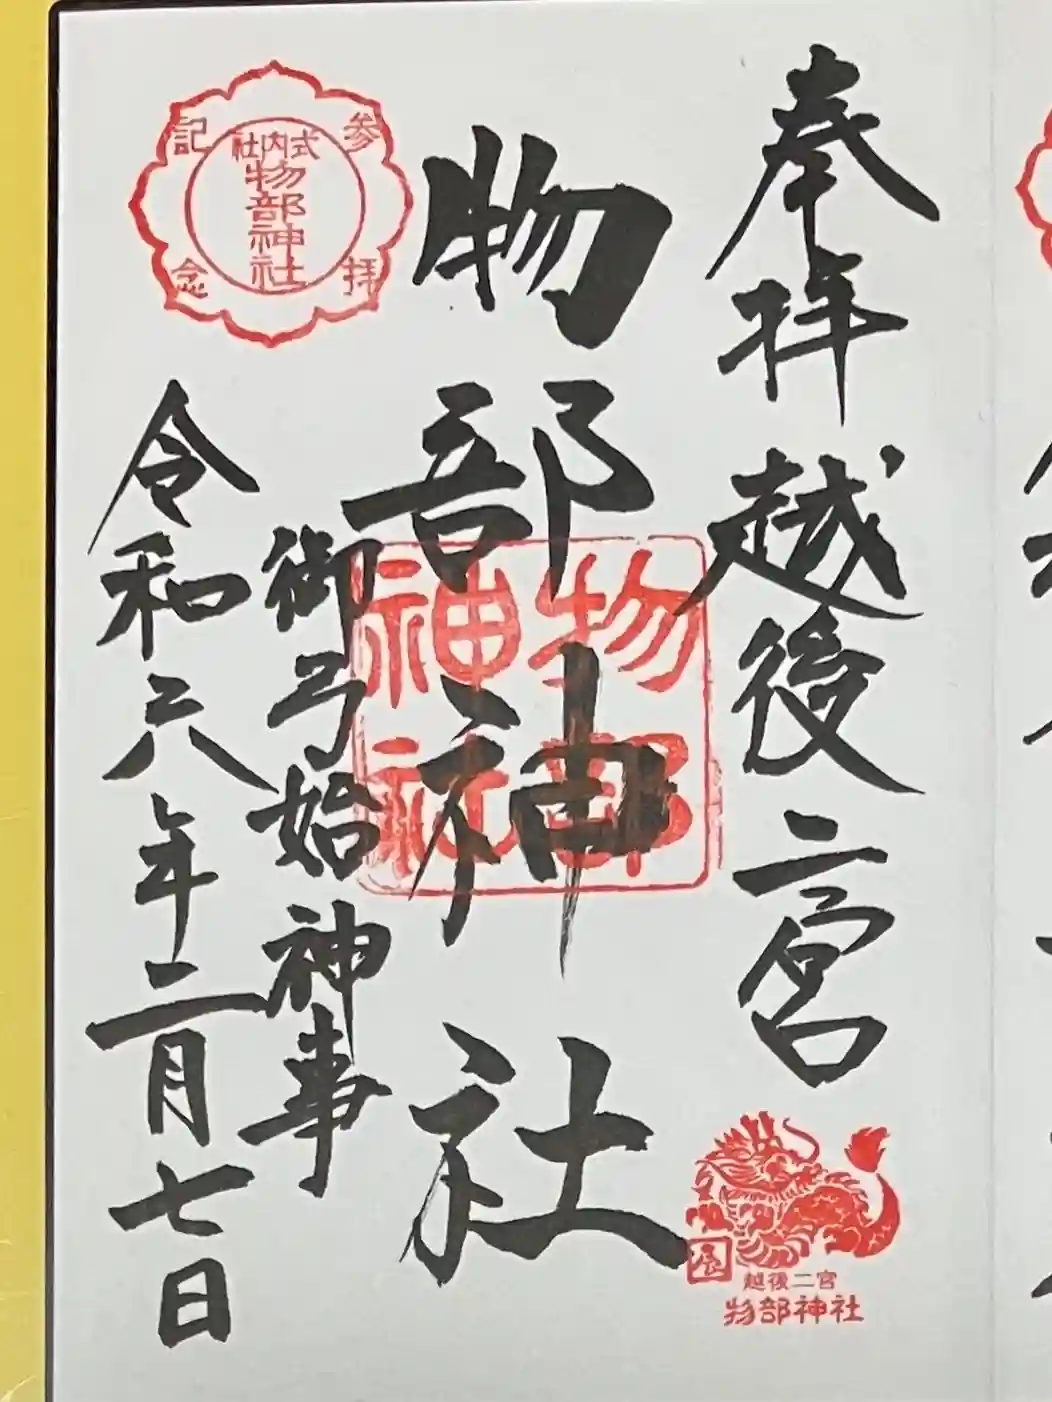 奉拝 越後二宮
物部神社
御弓始神事
令和六年二月七日
参拝記念
式内社
物部神社
物部神社
辰
越後二宮
物部神社